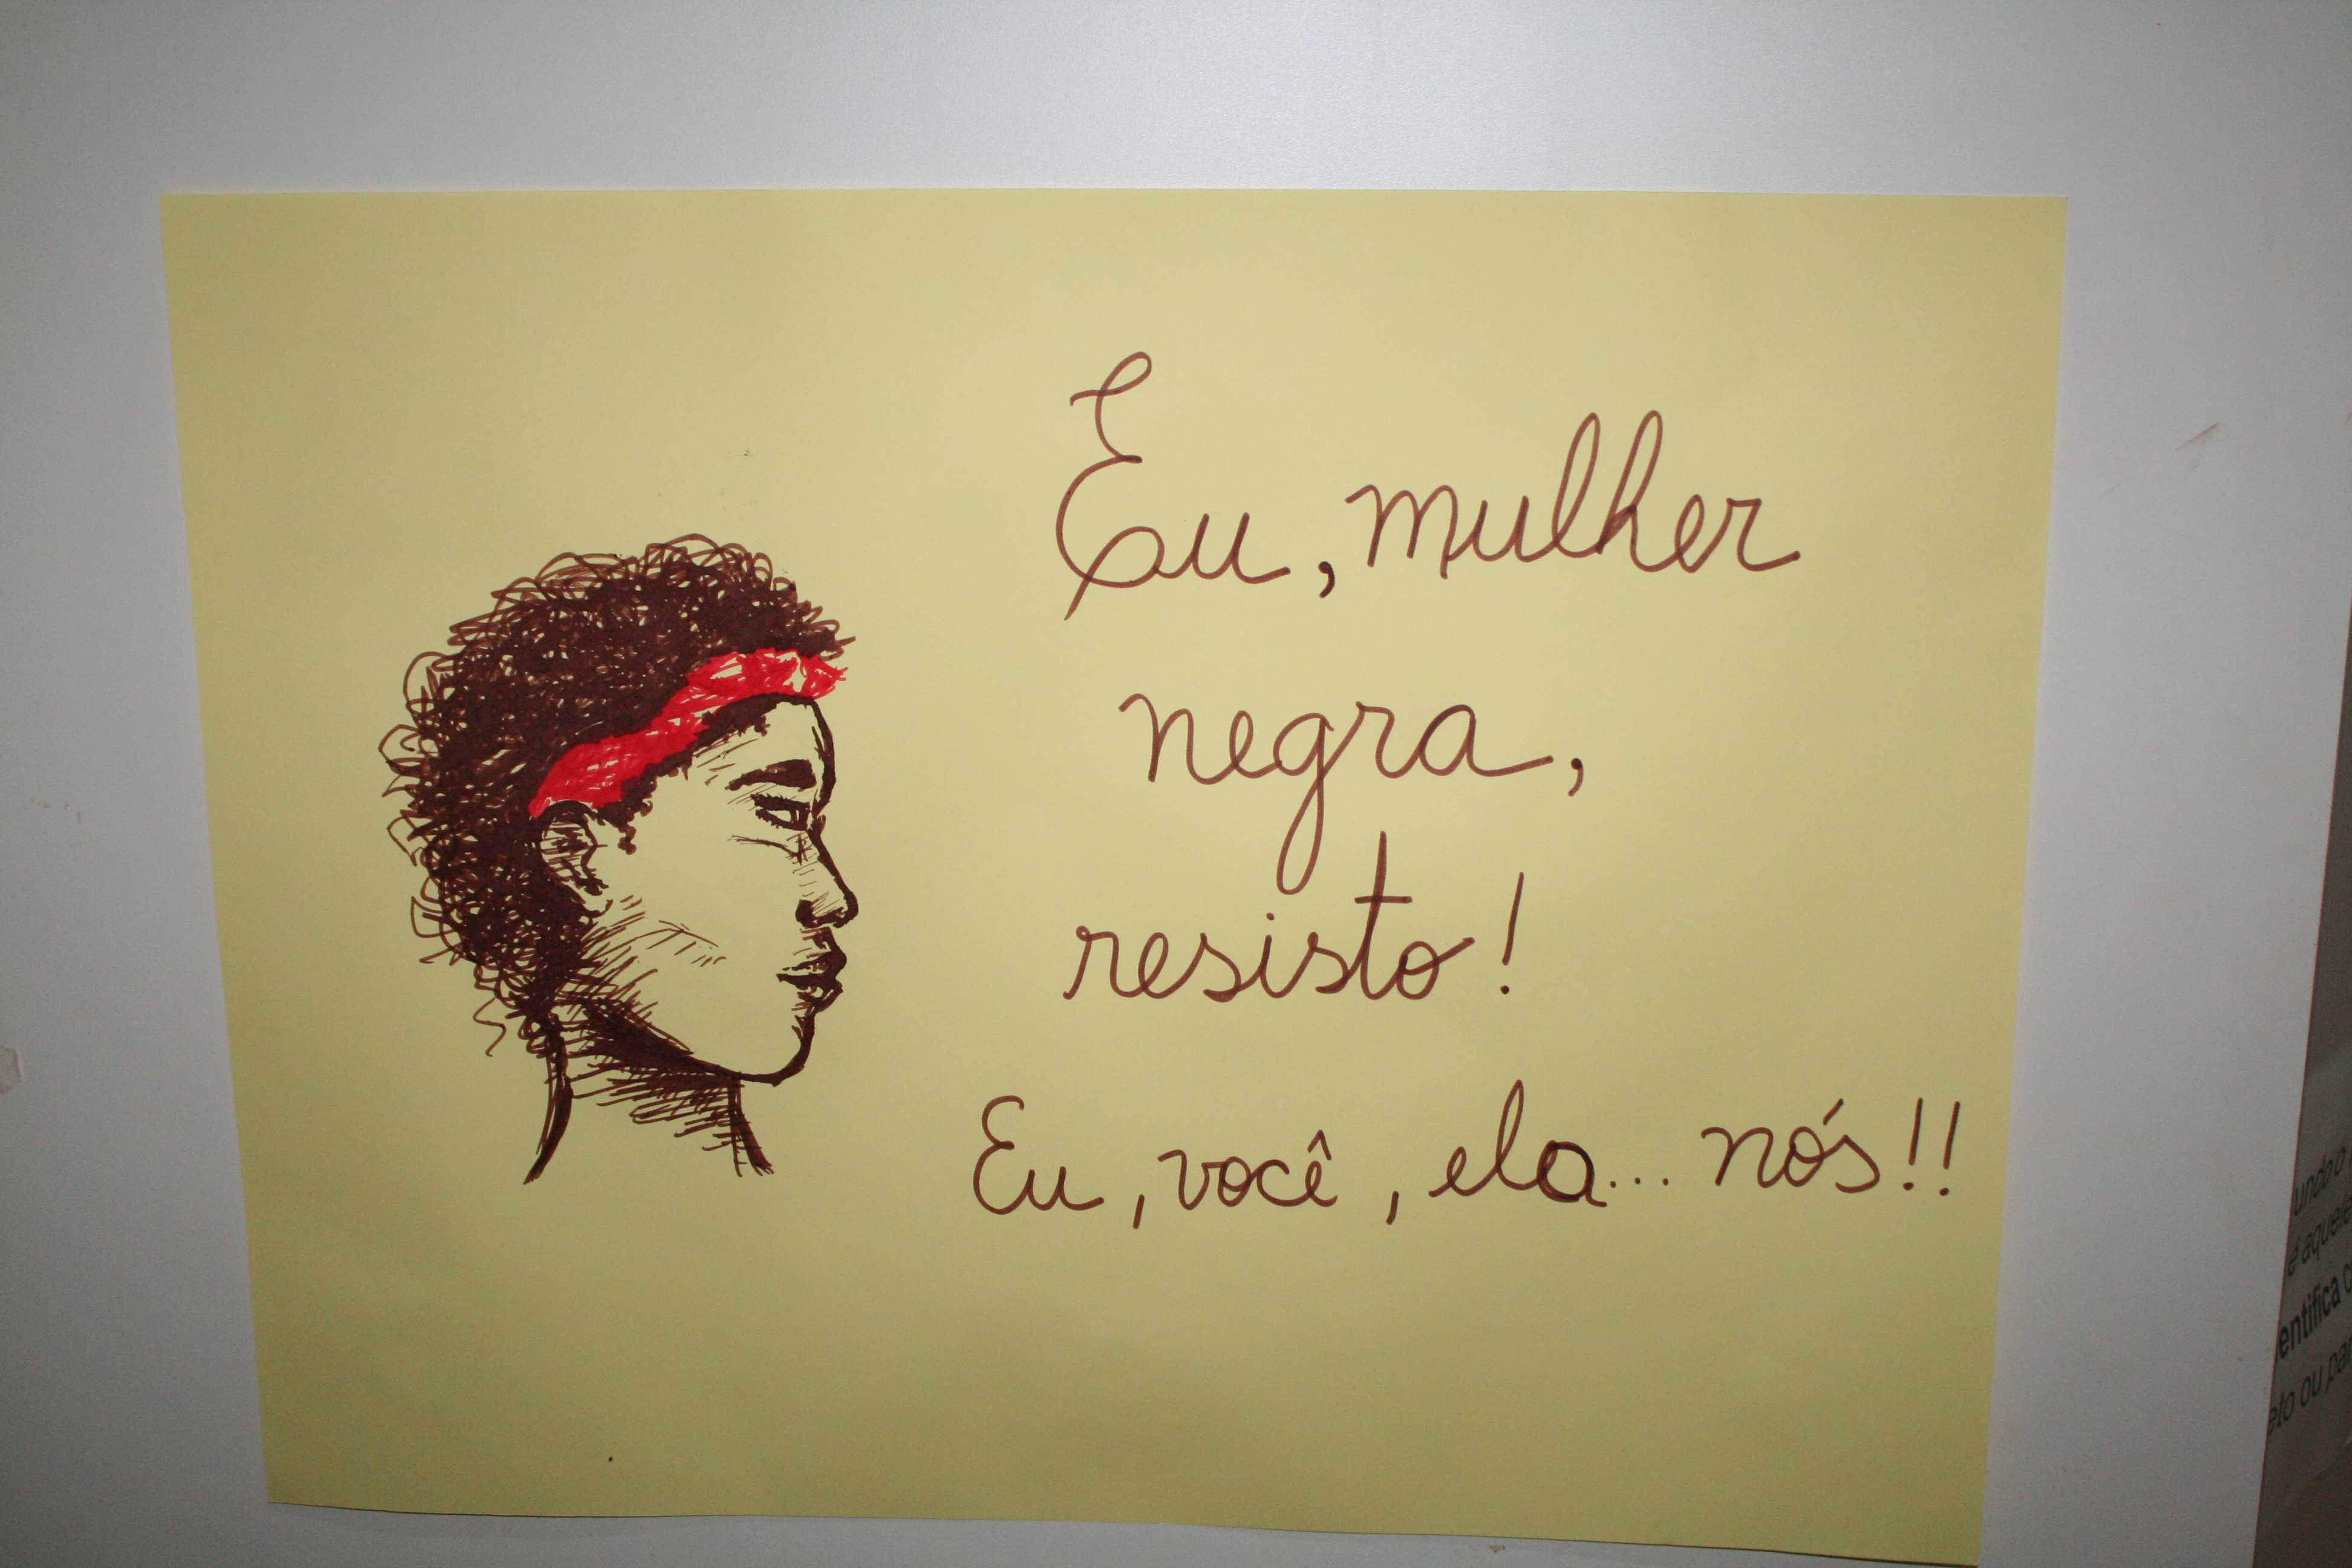 Eu, mulher
negra,
resisto!
Eu, você, ela... nós!!
é aquele
entifica
eto ou par